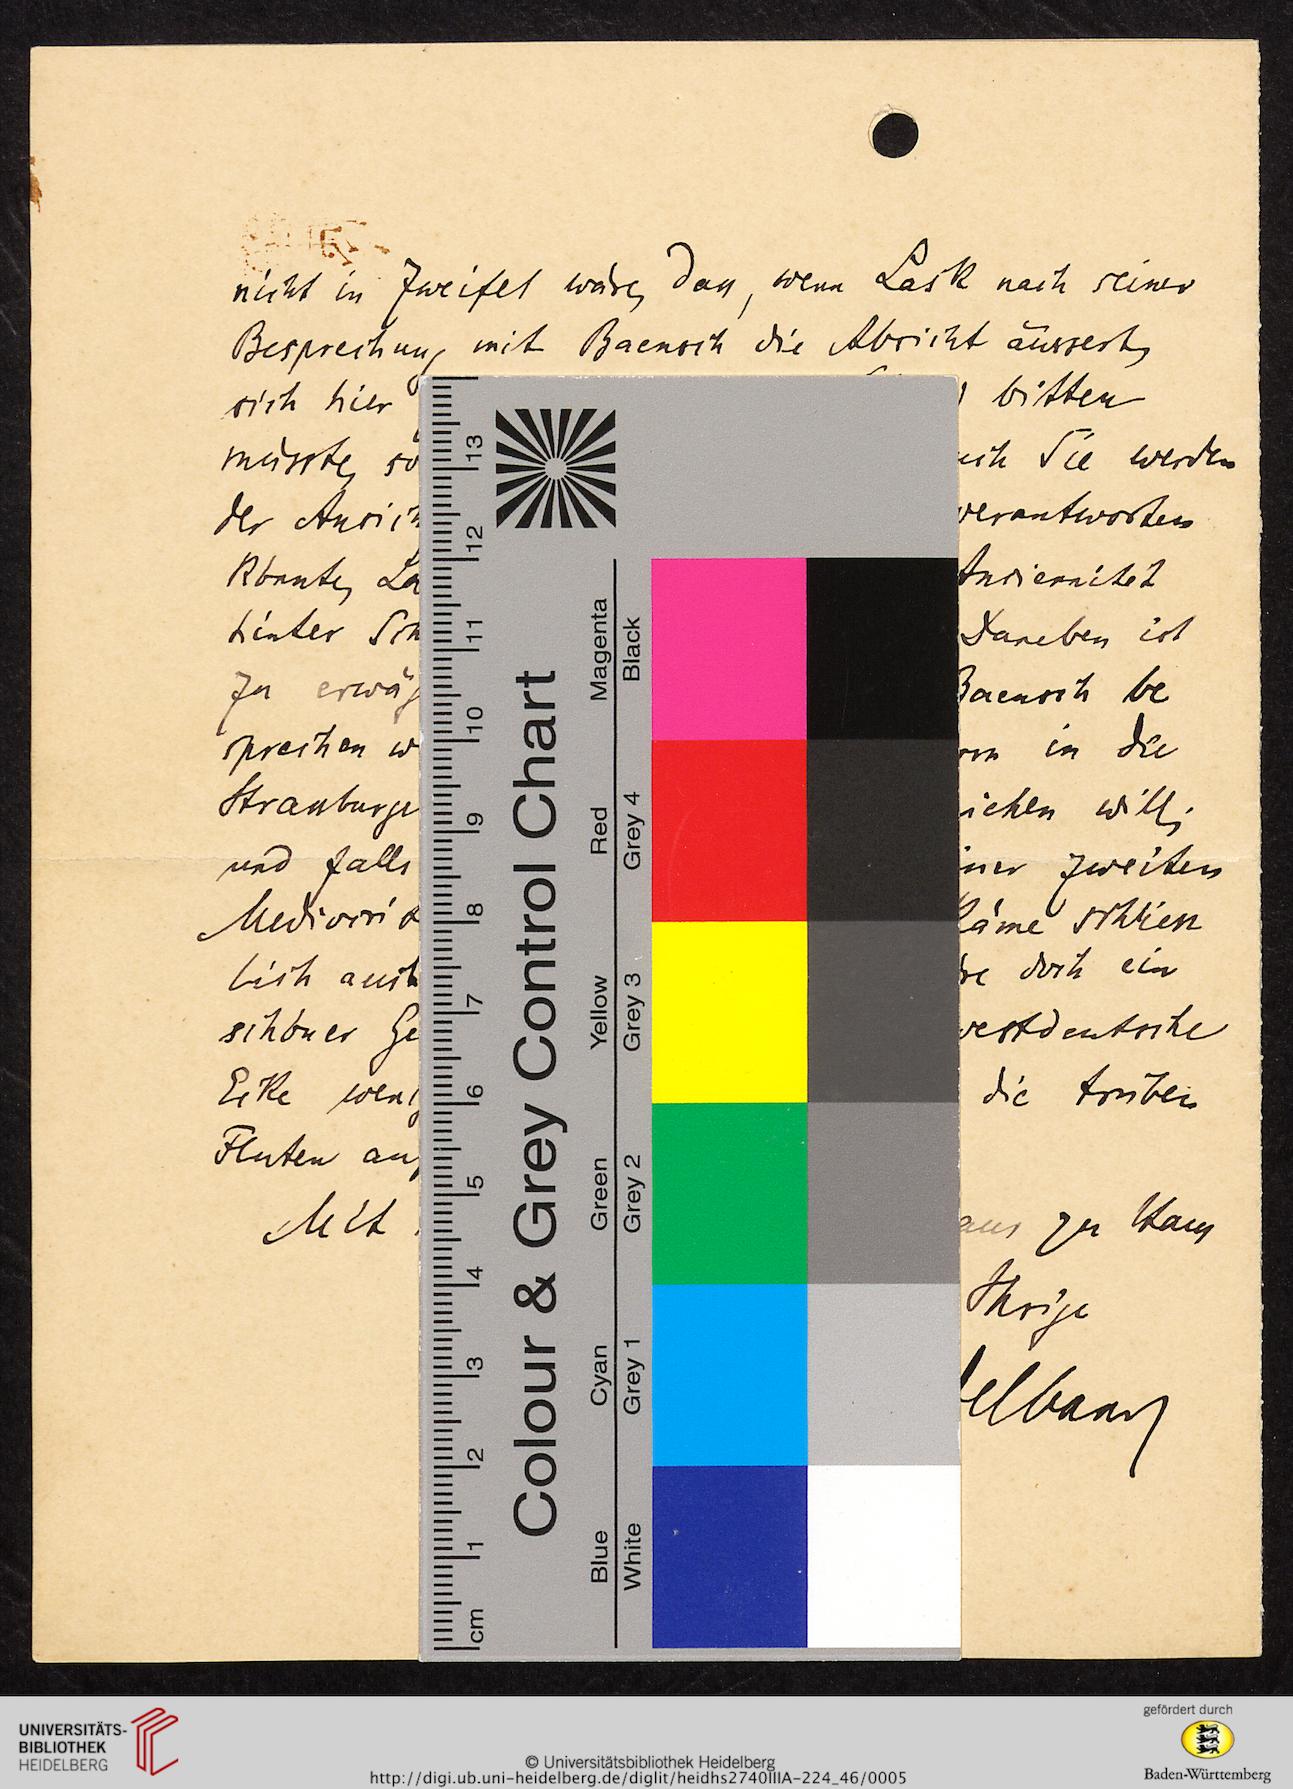 nicht in Zweifel wäre, dass, wenn Lask nach seiner
Besprechung mit Baensch die Absicht äussert,
sich hier bitten
müsste, so uch Sie werden
der Ansich verantworten
könnte, La Ansiennität
hinter Sch Daneben ist
zu erwäg Baensch be
sprechen w ron in die
Strassburge ichen will;
und falls iner zweiten
Mediocrit käme schliess
lich auch re doch ein
schöner Ge westdeutsche
Ecke weni die trüben
Fluten au
Mit aus zu Haus
Ihrige
delband
Colour & Grey Control Chart
Blue Cyan Green Yellow Red Magenta
White Grey 1 Grey 2 Grey 3 Grey 4 Black
cm 1 2 3 4 5 6 7 8 9 10 11 12 13
UNIVERSITÄTS-
BIBLIOTHEK
HEIDELBERG
© Universitätsbibliothek Heidelberg
http://digi.ub.uni-heidelberg.de/diglit/heidhs2740IIIA-224_46/0005
gefördert durch
Baden-Württemberg